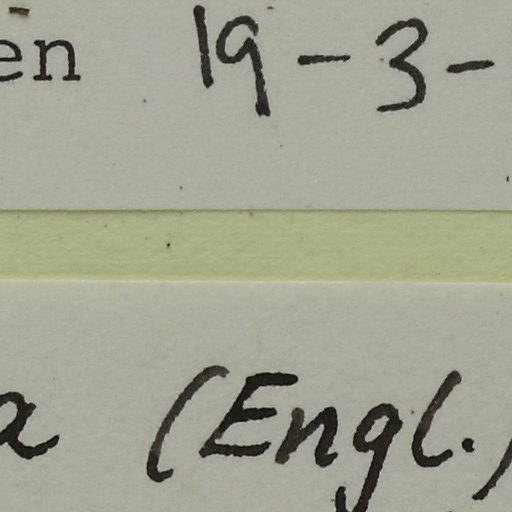 en 19-3-
a (Engl.)